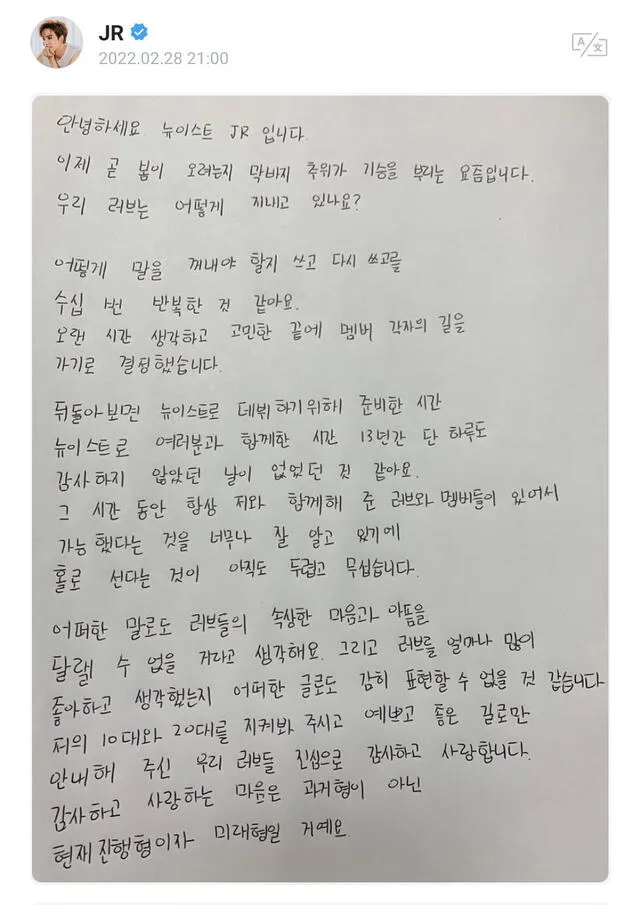 JR
2022.02.28 21:00
안녕하세요. 뉴이스트 JR 입니다.
이제 곧 봄이 오려는지 막바지 추위가 기승을 부리는 요즘입니다.
우리 러브는 어떻게 지내고 있나요?
어떻게 말을 꺼내야 할지 쓰고 다시 쓰고를
수십 번 반복한 것 같아요.
오랜 시간 생각하고 고민한 끝에 멤버 각자의 길을
가기로 결정했습니다.
뒤돌아보면 뉴이스트로 데뷔하기위해 준비한 시간
뉴이스트로 여러분과 함께한 시간 13년간 단 하루도
감사하지 않았던 날이 없었던 것 같아요.
그 시간 동안 항상 저와 함께해 준 러브와 멤버들이 있어서
가능했다는 것을 너무나 잘 알고 있기에
홀로 선다는 것이 아직도 두렵고 무섭습니다.
어떠한 말로도 러브들의 속상한 마음과 아픔을
달랠 수 없을 거라고 생각해요. 그리고 러브를 얼마나 많이
좋아하고 생각했는지 어떠한 글로도 감히 표현할 수 없을 것 같습니다
저의 10대와 20대를 지켜봐 주시고 예쁘고 좋은 길로만
안내해 주신 우리 러브들 진심으로 감사하고 사랑합니다.
감사하고 사랑하는 마음은 과거형이 아닌
현재 진행형이자 미래형일 거예요.